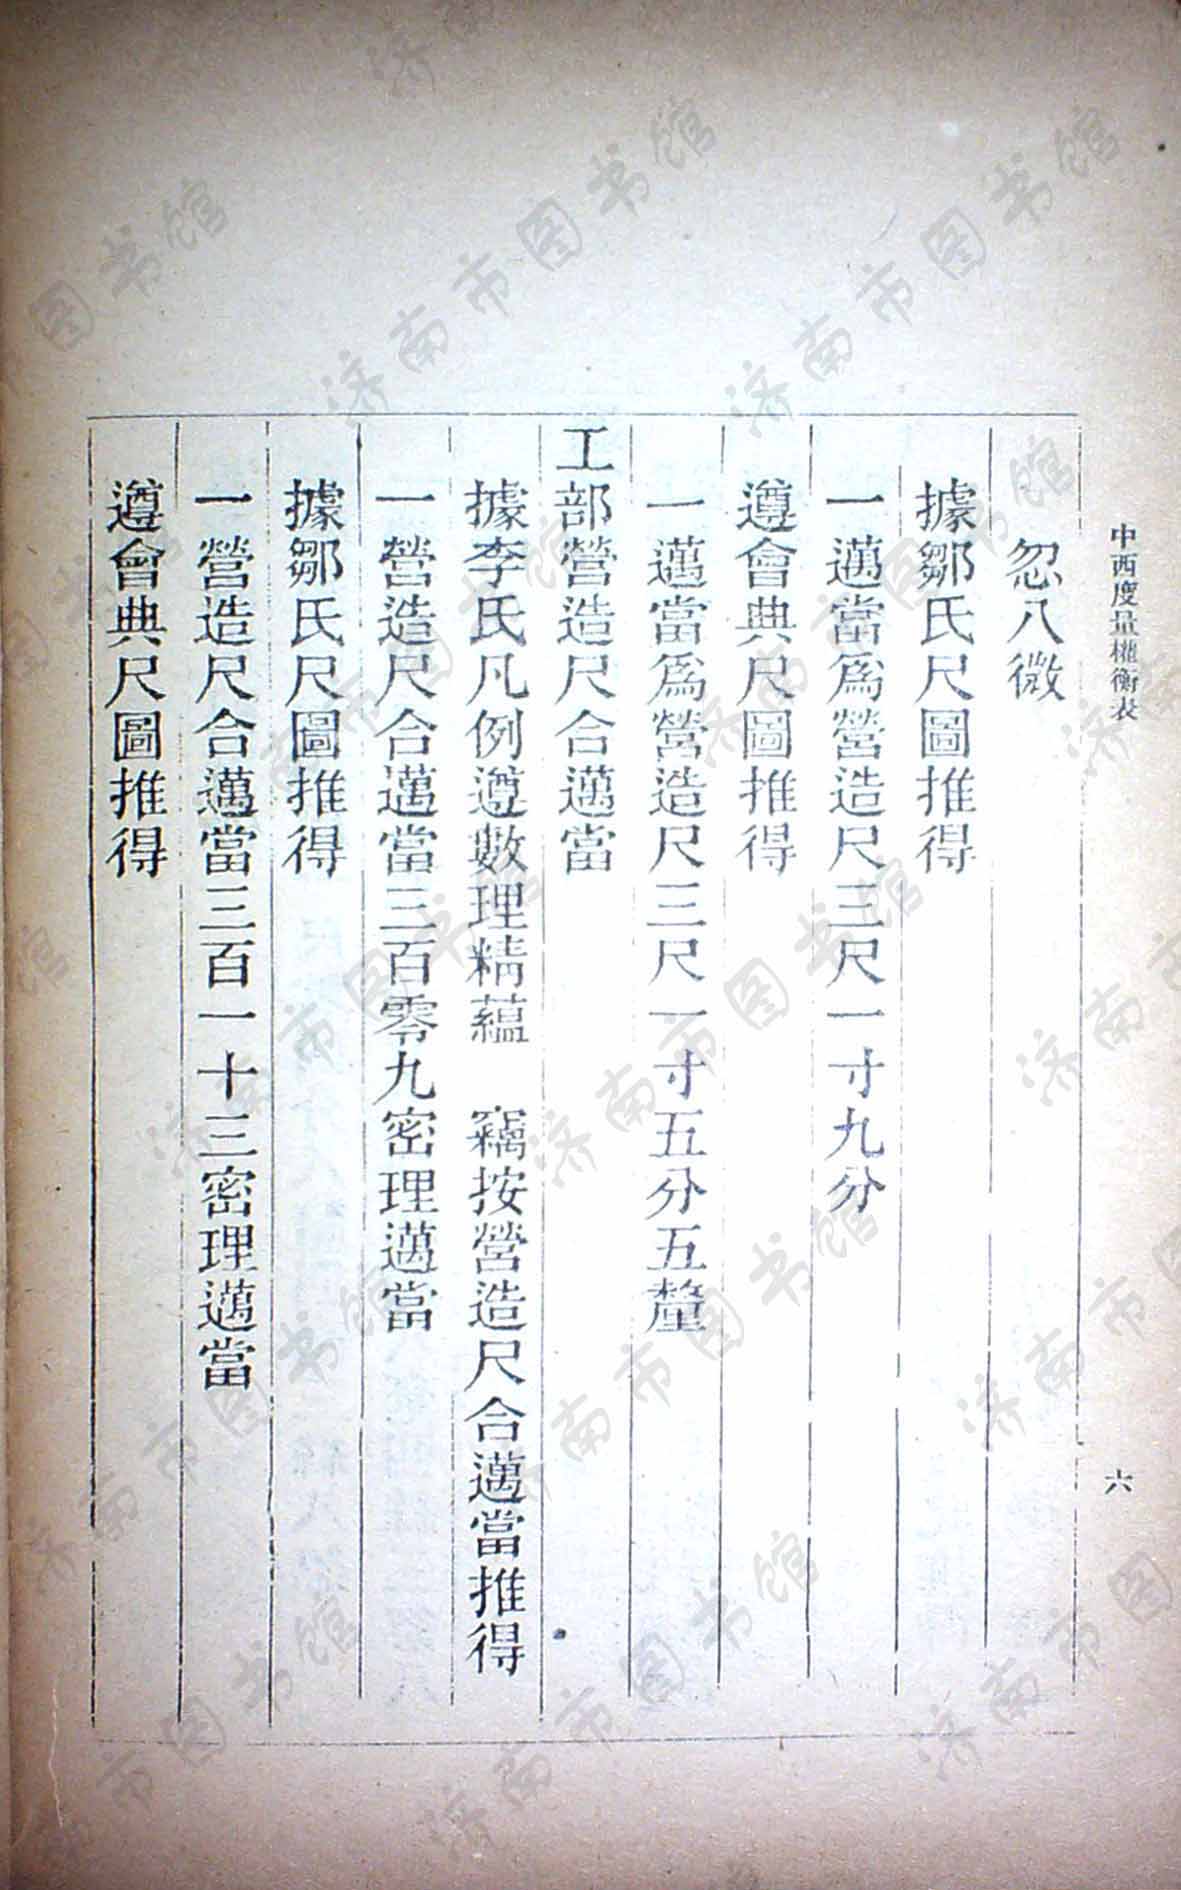 中西度量權衡表
六
忽八微
據鄒氏尺圖推得
一邁當爲營造尺三尺一寸九分
遵會典尺圖推得
一邁當爲營造尺三尺一寸五分五釐
工部營造尺合邁當
據李氏凡例遵數理精蘊　竊按營造尺合邁當推得
一營造尺合邁當三百零九密理邁當
據鄒氏尺圖推得
一營造尺合邁當三百一十三密理邁當
遵會典尺圖推得
济南市图书馆